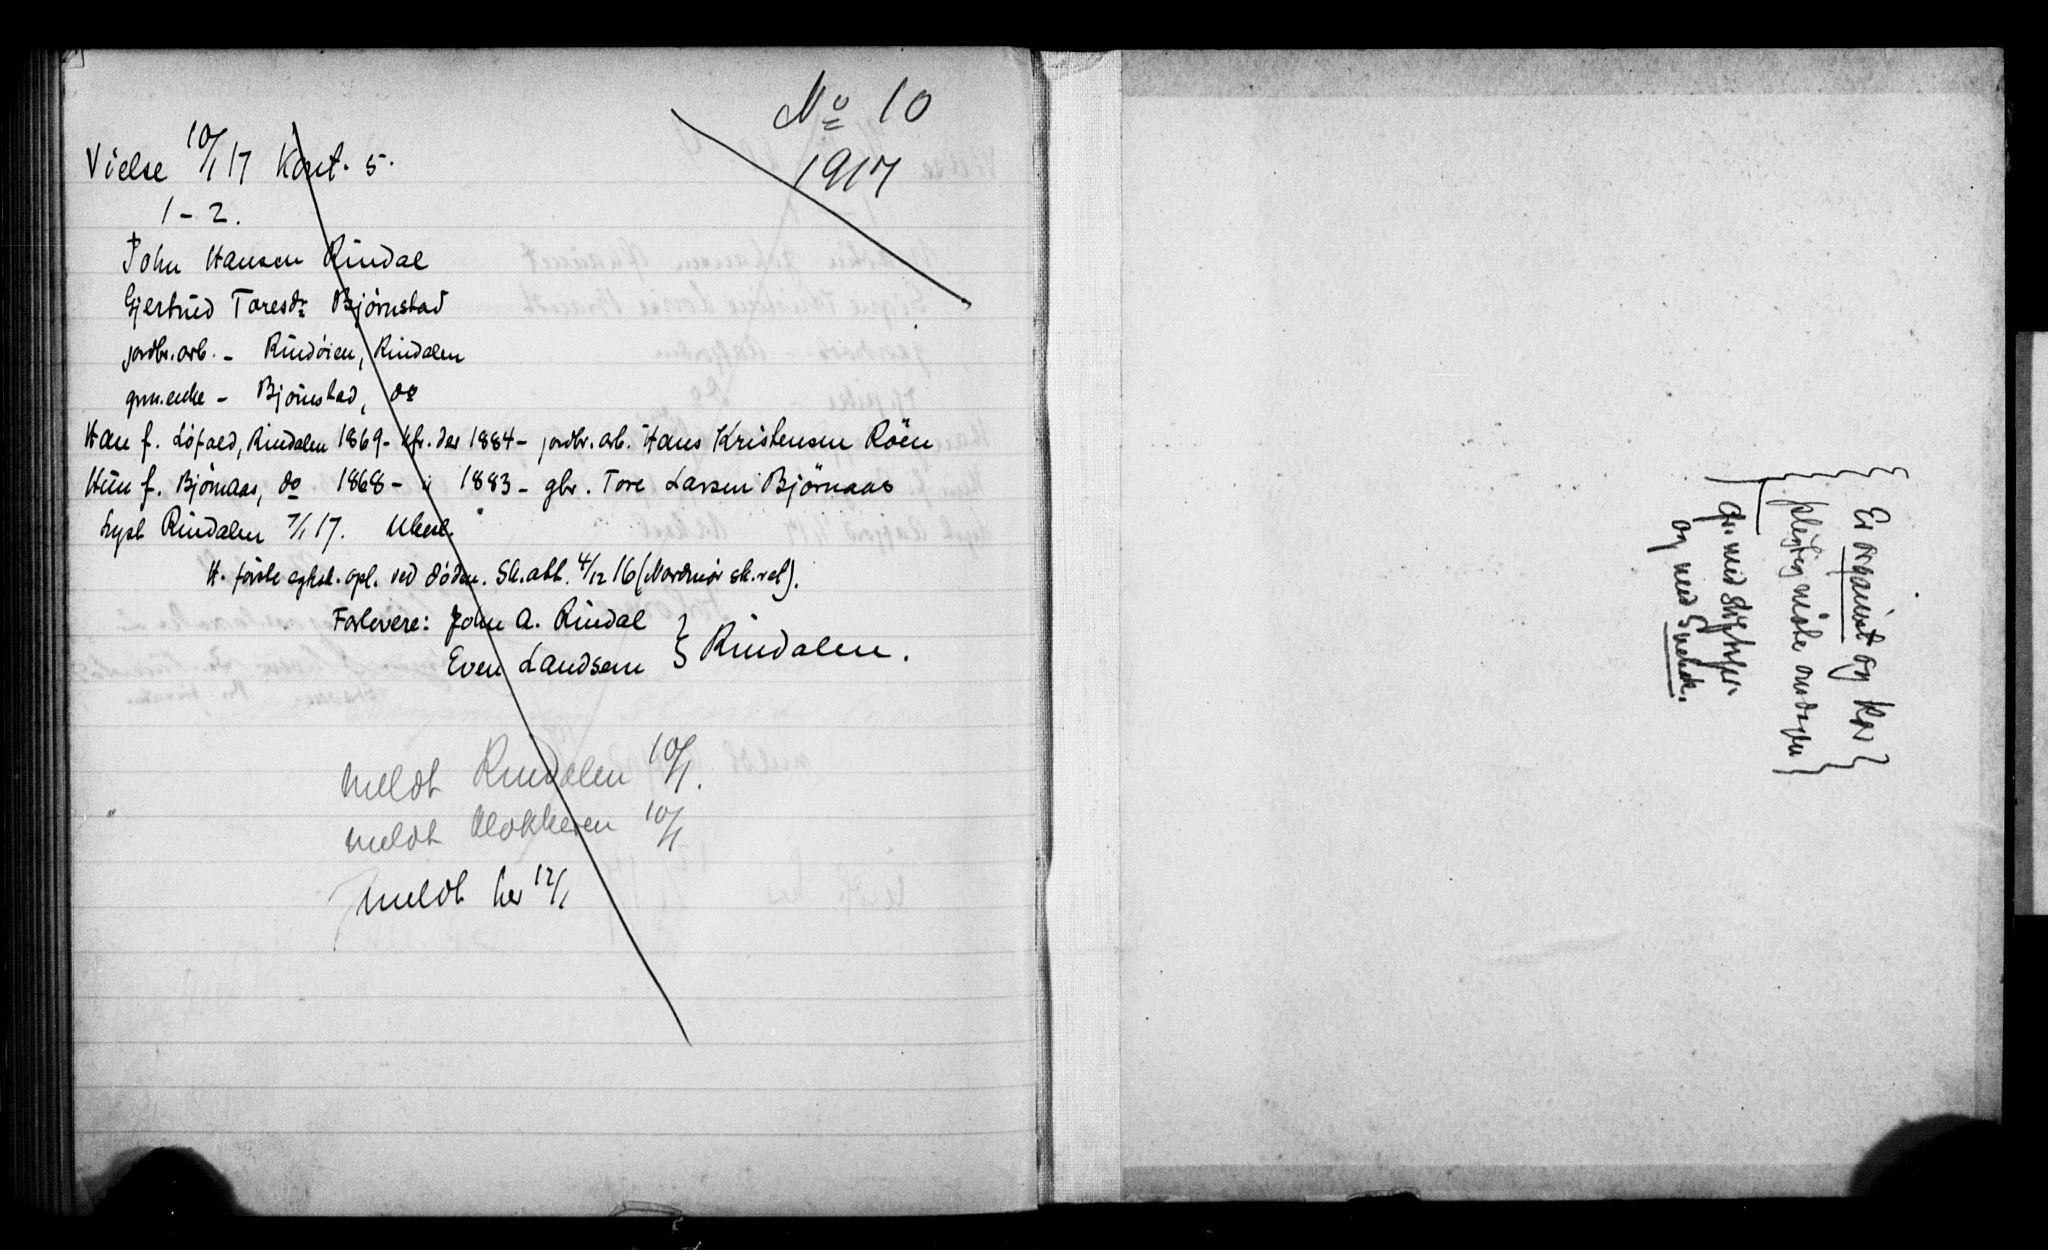 No 10
1917
Vielse 10/1 17 Kont. 5.
1 - 2.
John Hansen Rindal
Gjertrud Toresdr Bjørnstad
jordbr.arb. - Rindøien, Rindalen
grm.enke - Bjørnstad, do
Han f. Löfald, Rindalen 1869 - kfr. der 1884 - jordbr. arb. Hans Kristensen Röen
Hun f. Bjørnaas, do 1868 - " 1883 - gbr. Tore Larsen Bjørnaas
Lyst Rindalen 7/1 17. Ubesl.
H. første egtsk. opl. ved døden. Sk.att. 4/12 16 (Nordmør sk.ret).
Forlovere: John A. Rindal
Even Landsem } Rindalen.
meldt Rindalen 10/1.
meldt klokkeren 10/1
meldt her 12/1
Er organist og Kpr
pligtig
og med